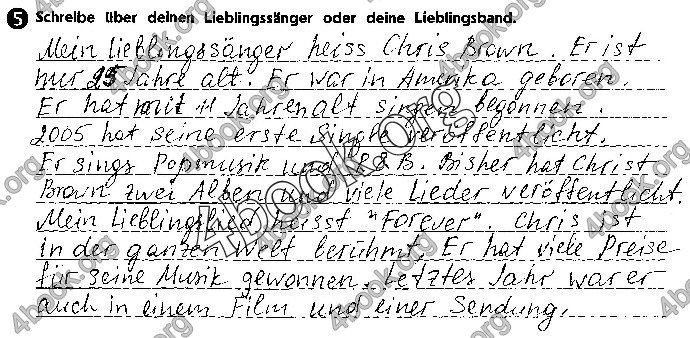 5 Schreibe über deinen Lieblingssänger oder deine Lieblingsband.
Mein Lieblingssänger heiss Chris Brown. Er ist
nur 25 Jahre alt. Er war in Amerika geboren.
Er hat mit 11 Jahren alt singen begonnen.
2005 hat seine erste Single veröffentlicht.
Er sings Popmusik und R&B. Bisher hat Christ
Brown zwei Alben und viele Lieder veröffentlicht.
Mein Lieblingslied heisst "Forever". Chris ist
in der ganzen Welt berühmt. Er hat viele Preise
für seine Musik gewonnen. Letztes Jahr war er
auch in einem Film und einer Sendung.
4book.org